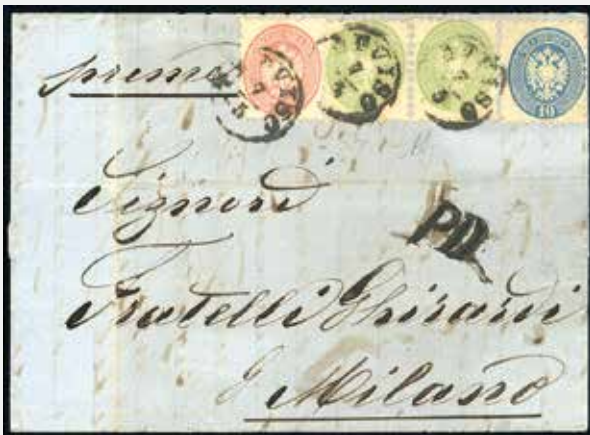 preme
TREVISO
TREVISO
TREVISO
SOLDI
10
Signori
P.D.
Fratelli Ghirardi
Milano